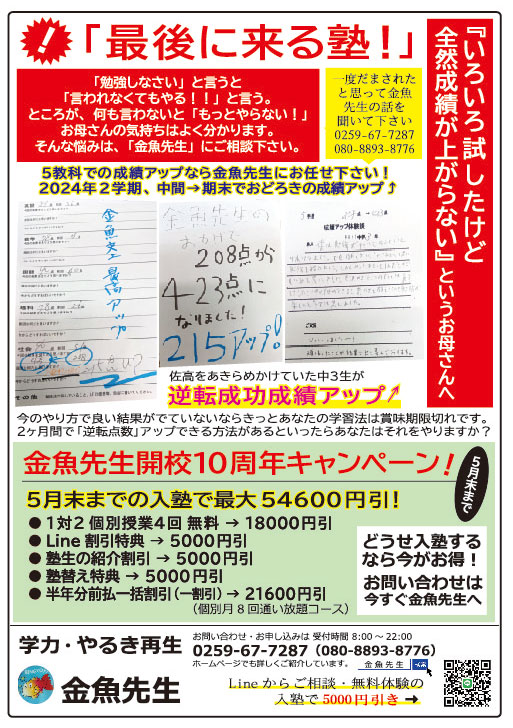 「最後に来る塾!」
『いろいろ試したけど
全然成績が上がらない』というお母さんへ
「勉強しなさい」と言うと
「言われなくてもやる！！」と言う。
ところが、何も言わないと「もっとやらない！」
お母さんの気持ちはよく分かります。
そんな悩みは、「金魚先生」にご相談下さい。
一度だまされた
と思って金魚
先生の話を
聞いて下さい
0259-67-7287
080-8893-8776
5教科での成績アップなら金魚先生にお任せ下さい！
2024年2学期、中間→期末でおどろきの成績アップ⤴
金魚先生の
おかげで
208点から
423点に
なりました!
215アップ!
佐高をあきらめかけていた中3生が
逆転成功成績アップ⤴
今のやり方で良い結果がでていないならきっとあなたの学習法は賞味期限切れです。
2ヶ月間で「逆転点数」アップできる方法があるといったらあなたはそれをやりますか？
金魚先生開校10周年キャンペーン！
5月末まで
5月末までの入塾で最大54600円引！
●1対2個別授業4回 無料 → 18000円引
●Line 割引特典 → 5000円引
●塾生の紹介割引 → 5000円引
●塾替え特典 → 5000円引
●半年分前払一括割引(一割引) → 21600円引
(個別月8回通い放題コース)
どうせ入塾する
なら今がお得！
お問い合わせは
今すぐ金魚先生へ
学力・やるき再生
金魚先生
お問い合わせ・お申し込みは 受付時間 8:00 ～ 22:00
0259-67-7287（080-8893-8776）
ホームページでも詳しくご紹介しています。
金魚先生
Lineからご相談・無料体験の
入塾で5000円引き➡